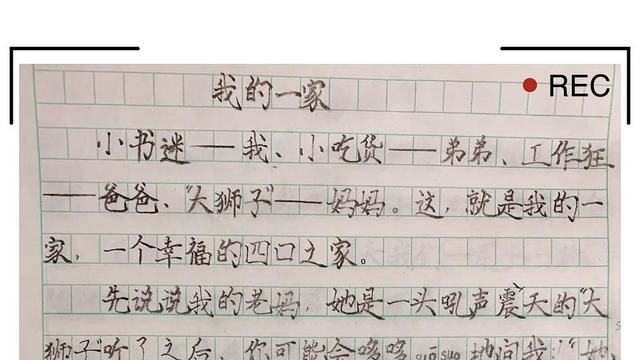 REC
我的一家
小书迷——我、小吃货——弟弟、工作狂
——爸爸、“大狮子”——妈妈。这，就是我的一
家，一个幸福的四口之家。
先说说我的老妈，她是一头吼声震天的“大
狮子”听了之后，你可能会哆哆 suō suō 地问我：“她